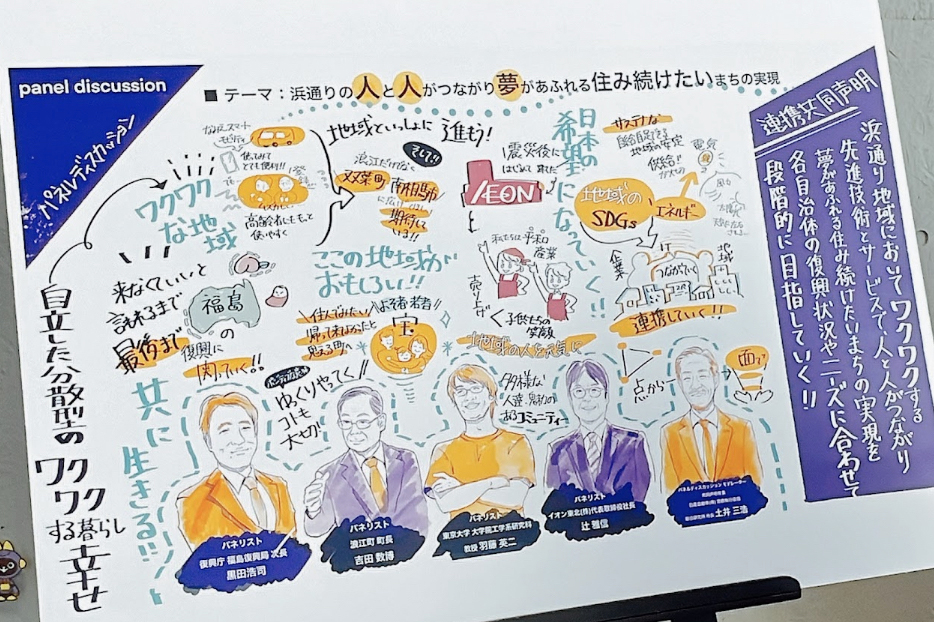 panel discussion
パネルディスカッション
■ テーマ：浜通りの人と人がつながり夢があふれる住み続けたいまちの実現
連携共同声明
浜通り地域においてワクワクする
先進技術とサービスで人と人がつながり
夢があふれる住み続けたいまちの実現を
各自治体の復興状況やニーズに合わせて
段階的に目指していく!!
自立した分散型の
ワクワク
する暮らし
幸せ
ワクワク
な地域
高齢者にもっと
使いやすく
地域といっしょに進もう!
そして!!
浪江だけでなく
双葉町
南相馬市
に広げ
期待して
いる!!
震災後に
はじめて来た
ÆON
日本の
希望に
なっていく!!
サステナブルな
地域の安定
供給が
電気
地域の
SDGs
エネルギー
企業
地域
つながていく
連携していく!!
来なくていいと
言われるまで
最後まで
福島
の
復興に
関っていく!!
共に
生きる!!
この地域が
おもしろい!!
住んでみたい
帰って来なかったと
思える町へ
よそ者 若者
宝
産業
売り上げ
子供たちの
笑顔
地域の人を元気に
ゆっくりやってく
コトも
大切!
多様な
人達
ある
コミュニティー
点から
面へ
パネリスト
復興庁 福島復興局 次長
黒田浩司
パネリスト
浪江町 町長
吉田 数博
パネリスト
東京大学 大学院工学系研究科
教授 羽藤 英二
パネリスト
イオン東北(株)代表取締役社長
辻 雅信
パネルディスカッション モデレーター
土井 三浩